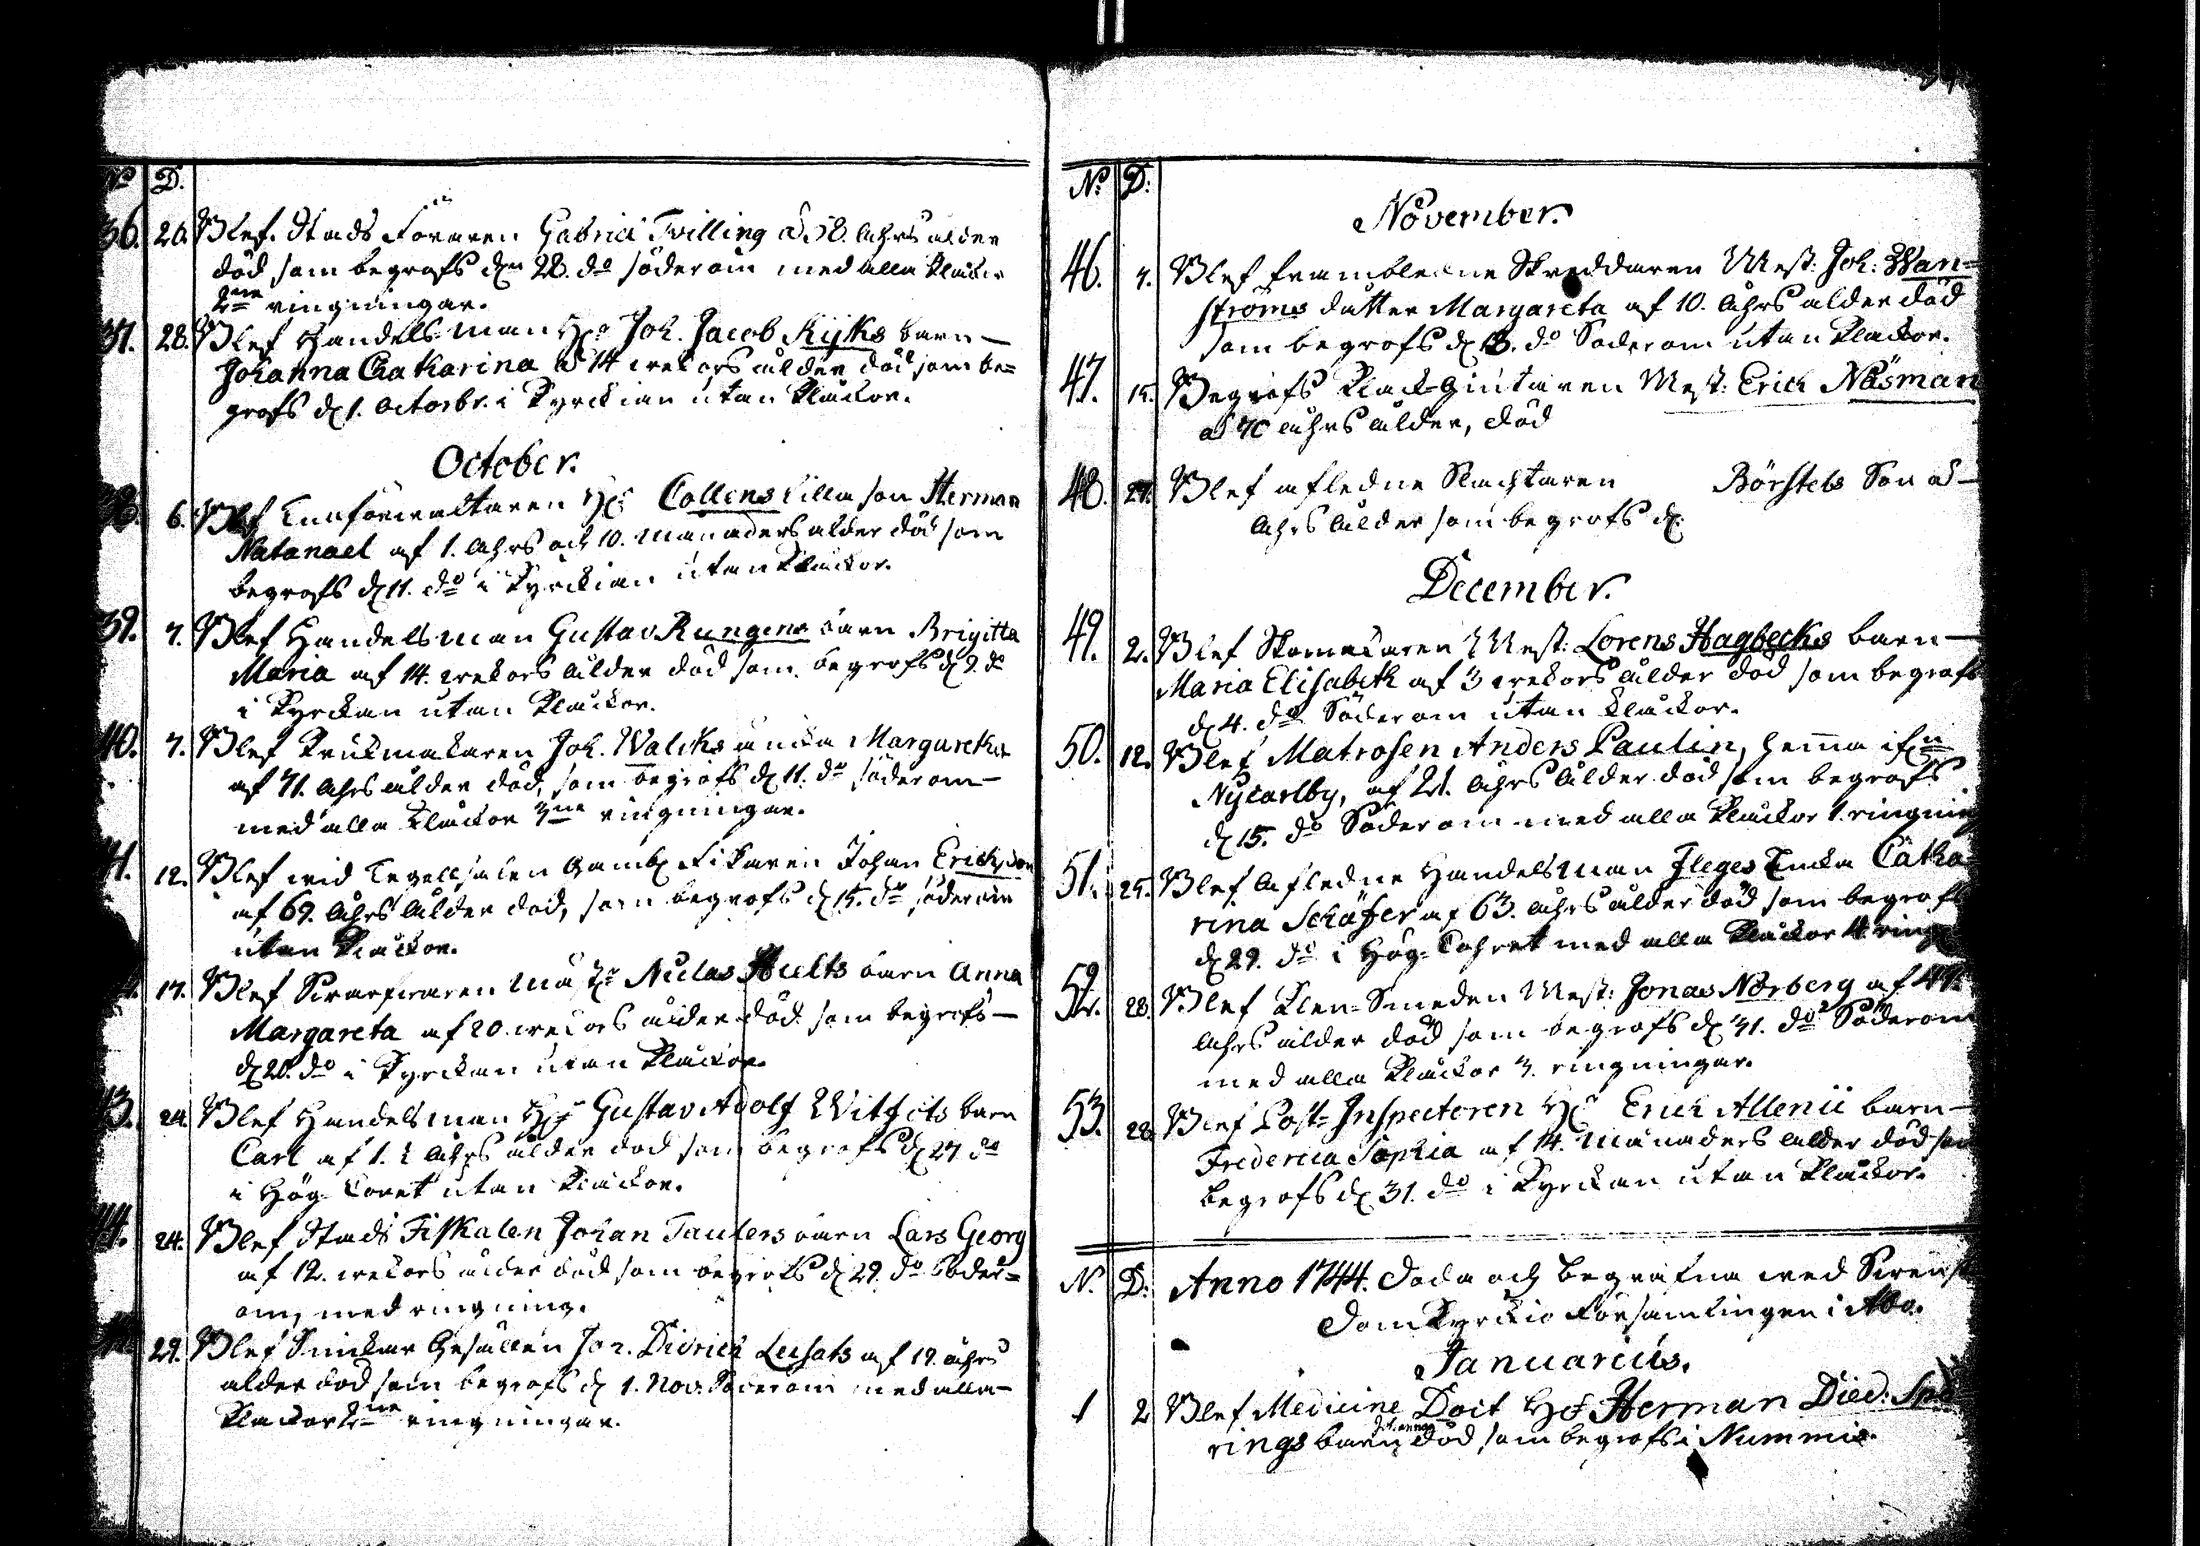 No D.
36. 26. Blef Stads Föraren Gabriel Tvilling à 58. åhrs ålder
död som begrofs dn 28. do söder om med alla klåckor
2ne ringningar.
37. 28. Blef Handels-man Hr Joh. Jacob Rijks barn
Johanna Catharina à 14 wekors ålder död som be=
grofs d. 1. Octobr. i Kyrckian utan klåckor.
October.
38. 6. Blef Hr Collens lilla son Herman
Natanael af 1. åhrs och 10. månaders ålder död som
begrofs d. 11. do i Kyrckian utan klåckor.
39. 7. Blef Handelsman Gustav Rungens barn Brigitta
Maria af 14. wekors ålder död som begrofs d. 9. do
i Kyrckan utan klåckor.
40. 7. Blef Krukmakaren Joh. Walcks änka Margaretha
af 71. åhrs ålder död, som begrofs d. 11. do söder om
med alla klåckor 3ne ringningar.
41. 12. Blef wid Johan Erichsson
af 69. åhrs ålder död, som begrofs d. 15. do söder om
utan klåckor.
17. Blef Swarfwaren Niclas Hults barn Anna
Margareta af 20. wekors ålder död som begrofs
d. 20. do i Kyrckan utan klåckor.
43. 24. Blef Handelsman Hr Gustav Adolf Witfots barn
Carl af 1. åhrs ålder död som begrofs d. 27 do
i Hög-Coret utan klåckor.
44. 24. Blef Stads Fiskalen Johan Taulers barn Lars Georg
af 12. wekors ålder död som begrofs d. 29. do Söder=
om, med ringning.
29. Blef Snickar Gesällen Joh. Didrich Leusats af 19. åhrs
ålder död som begrofs d. 1. Nov. Söder om med alla
klåckor 2ne ringningar.
No D:
November.
46. 7. Blef framledne Skreddaren Mest: Joh: Wan=
ströms dotter Margareta af 10. åhrs ålder död
som begrofs d. 13. do Söder om utan klåckor.
47. 15. Begrofs Klåck-Giutaren Mest: Erich Näsman
à 70 åhrs ålder, död
48. 27. Blef afledne Slachtaren Börstels Son à
åhrs ålder som begrofs d.
December.
49. 2. Blef Skomakaren Mest: Lorens Hagbecks barn
Maria Elisabeth af 3 wekors ålder död som begrofs
d. 4. do Söder om utan klåckor.
50. 12. Blef Matrosen Anders Paulin, hemma ifrn
Nycarlby, af 21. åhrs ålder död som begrofs
d. 15. do Söder om med alla klåckor 1. ringning
51. 25. Blef afledne Handelsman Fleges Encka Catha=
rina Schäfer af 63. åhrs ålder död som begrofs
d. 29. do i Hög-Cohret med alla klåckor 4. ring
52. 28. Blef Klen-Smeden Mest: Jonas Norberg af 47.
åhrs ålder död som begrofs d. 31. do Söder om
med alla klåckor 3. ringningar.
53. 28. Blef Post-Inspectoren Hr Erich Allenii barn
Frederica Sophia af 14. månaders ålder död som
begrofs d. 31. do i Kyrckan utan klåckor.
N. D: Anno 1744. Döda och begrafna wed Swensk
Domkyrckio Församlingen i Åbo.
Januarius.
1 2 Blef Medicine Doct Hr Herman Died: Spö
rings barn Johannes död som begrofs i Nummis.